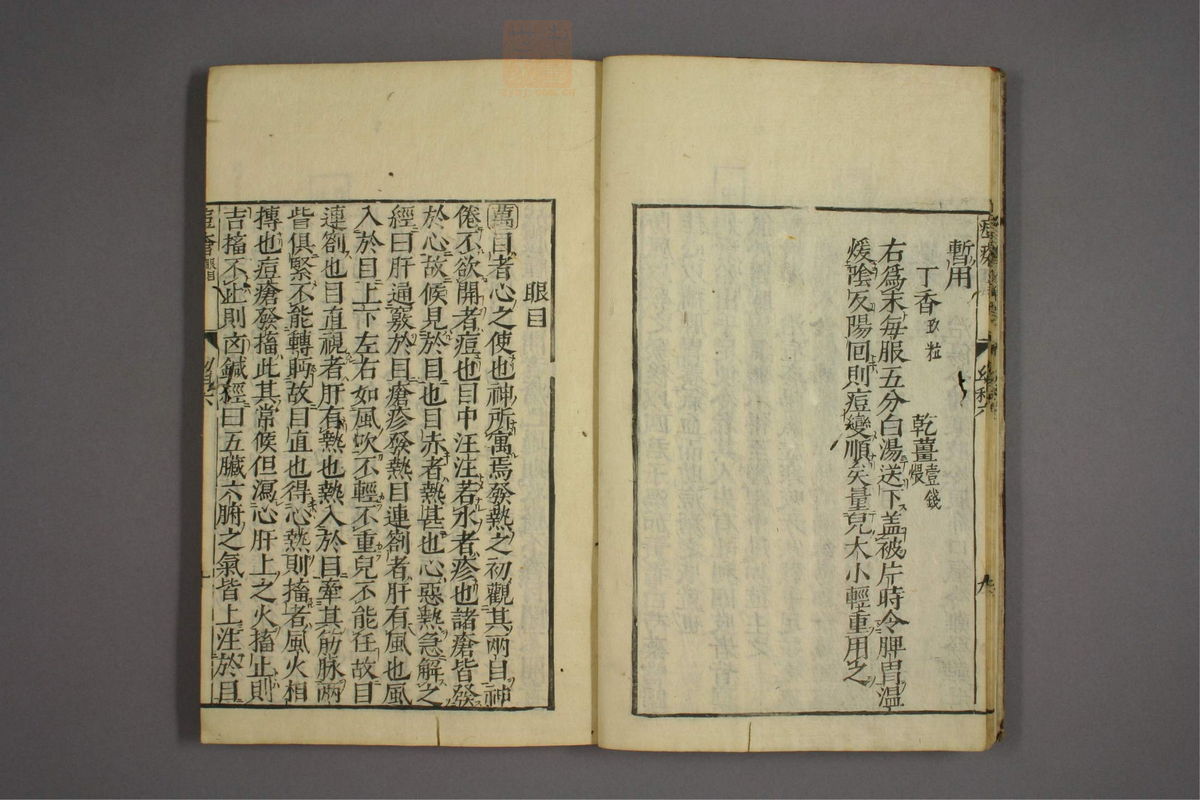 暫用
丁香玖粒 乾薑壹錢煨
右爲末每服五分白湯送下盖被片時令脾胃溫
煖陰反陽回則痘變順矣量兒大小輕重用之
眼目
萬目者心之使也神所寓焉發熱之初觀其兩目神
倦不欲開者痘也目中汪汪若水者疹也諸瘡皆發
於心故候見於目也目赤者熱甚也心惡熱急解之
經曰肝通竅於目瘡疹發熱目連劄者肝有風也風
入於目上下左右如風吹不輕不重兒不能任故目
連劄也目直視者肝有熱也熱入於目牽其筋脉兩
眥俱緊不能轉眄故目直也得心熱則搐者風火相
搏也痘瘡發搐此其常候但瀉心肝上之火搐止則
吉搐不止則凶鍼經曰五臟六腑之氣皆上注於目